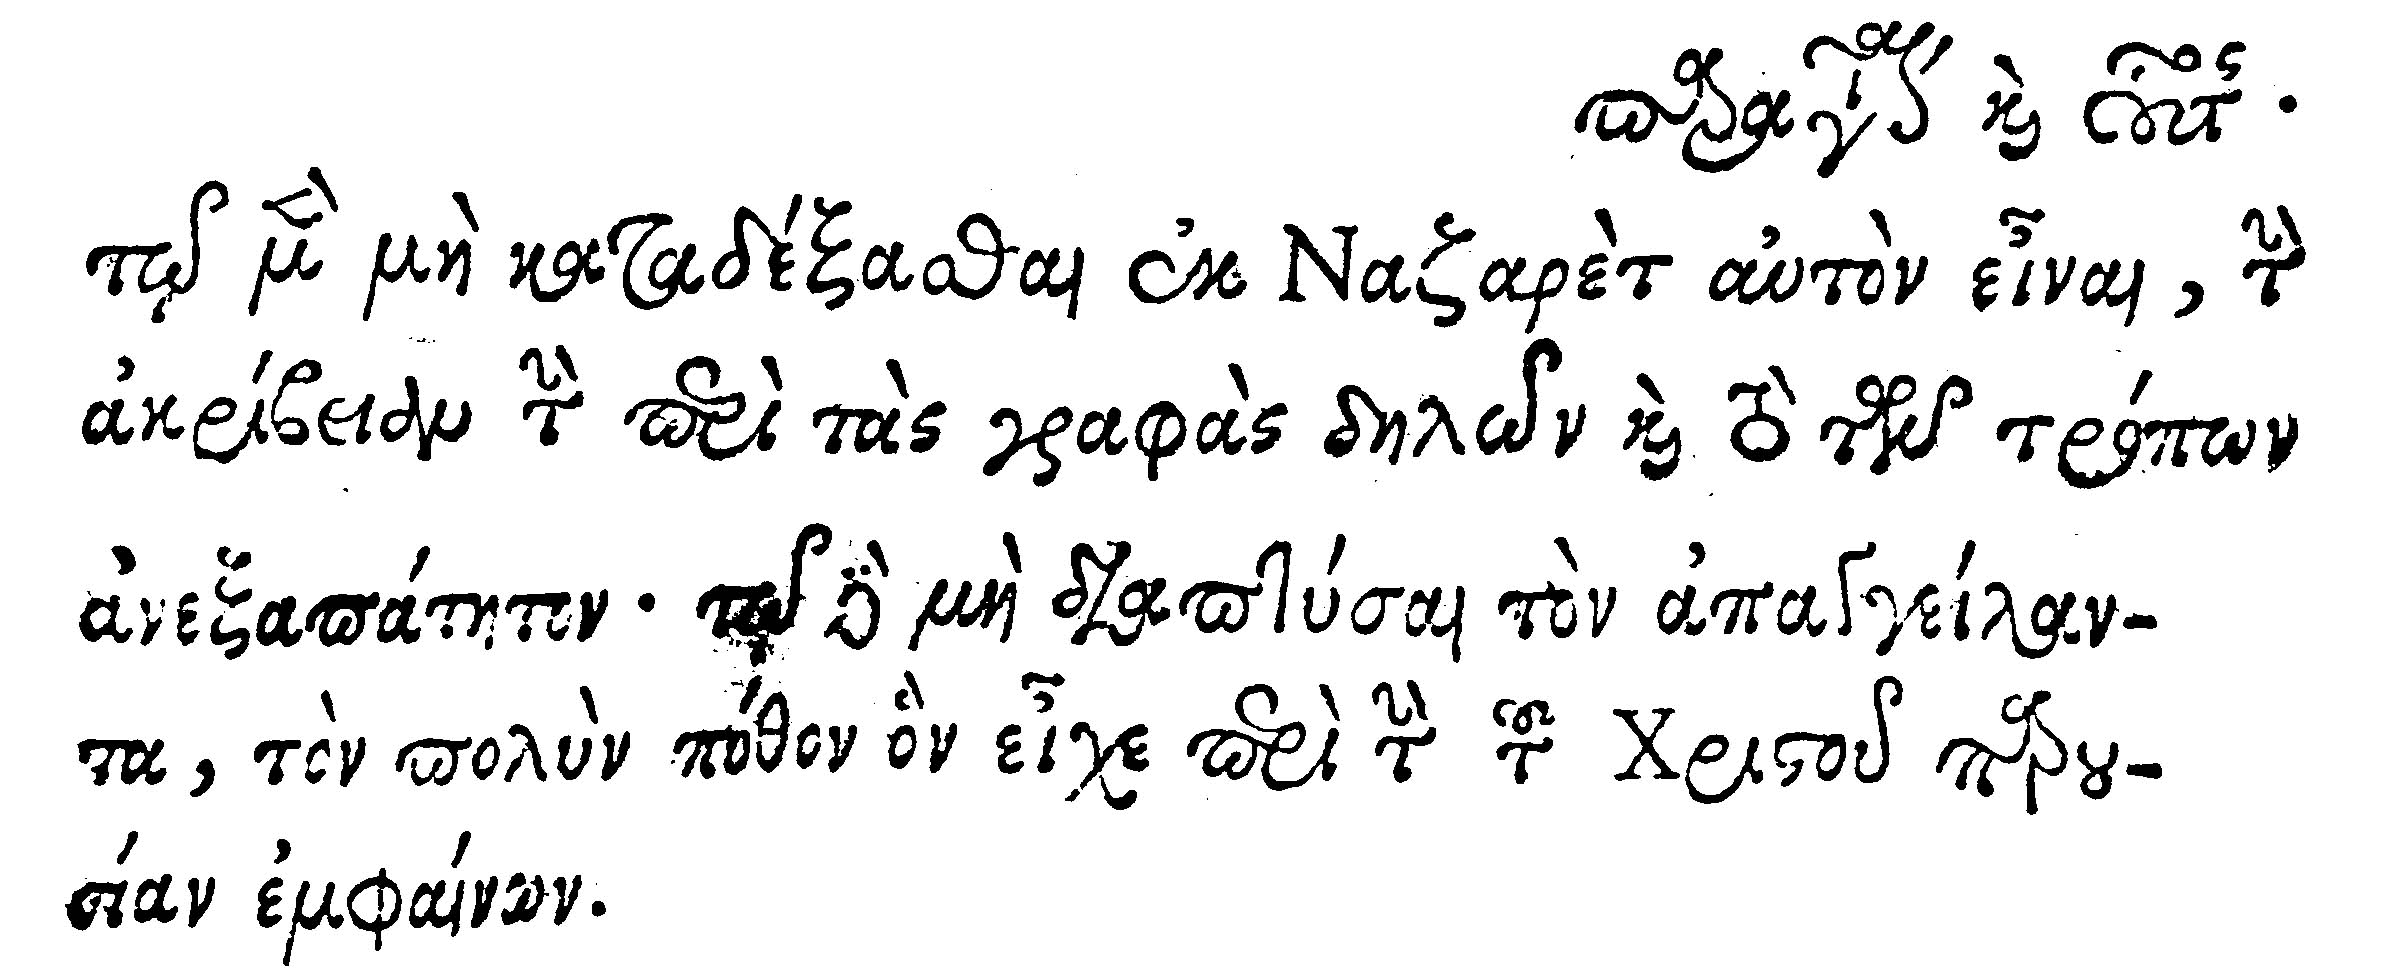 καὶ οὗτος.
τῷ μὲν μὴ καταδέξασθαι ἐκ Ναζαρὲτ αὐτὸν εἶναι, τὴν
ἀκρίβειαν τὴν περὶ τὰς γραφὰς δηλῶν καὶ τὸ τῶν τρόπων
ἀνεξαπάτητον· τῷ δὲ μὴ διαπτύσαι τὸν ἀπαγγείλαν-
τα, τὸν πολὺν πόθον ὃν εἶχε περὶ τὴν τοῦ Χριστοῦ παρου-
σίαν ἐμφαίνων.